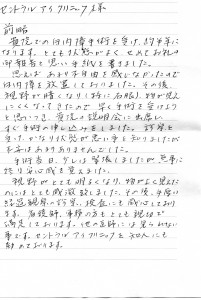 セントラルアイクリニック様
前略
貴院での白内障手術を受け、約半年に
なります。とても状態がよく、せめてお礼の
御報告を思い手紙を書きました。
思えばあまり不自由を感じなかったので
白内障を放置しておりました。その後、
視野が暗くなり(特に右眼)、物が見え
にくくなってきたので早く手術を受けよう
と思いつき、貴院の説明会に出席し
すぐ手術の申し込みをしました。診察を
受け、かなり状態が悪い事を知りましたが
不安はありありませんでした。
手術当日、少しは緊張しましたが無事に
終り安心感を覚えました。
視野がとても明るくなり、物がよく見えた
のにはとても感激致しました。その後、手厚い
検査にも感心しており
ます。看護師、事務の方もとても親切で
満足しております。他の医院には見られない
事です。セントラルアイクリニックを知人にも
勧めております。